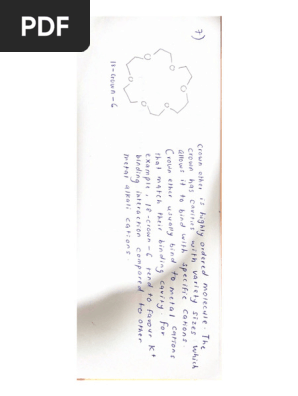 PDF
7)
O O O O O O
18-crown-6
Crown ether is highly ordered molecule. The
crown has cavities with variety sizes which
allows it to bind with specific cations
Crown ether usually bind to metal cations
that match their binding cavity. for
example, 18-crown-6 tend to favour K+
binding interaction compared to other
metal alkali cations